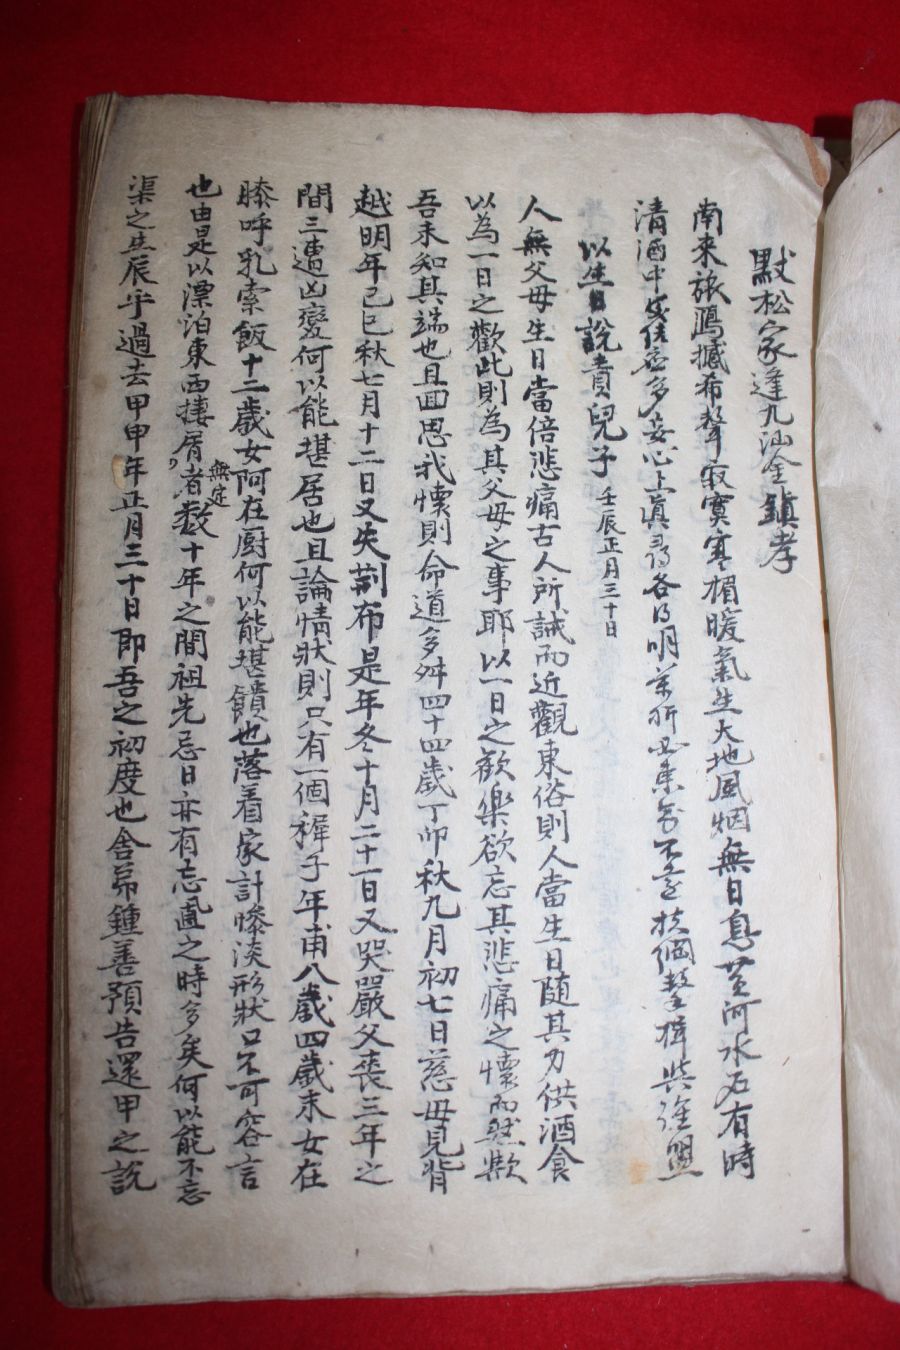 默松家逢九汕金鎭孝
南來旅鴈撼希聲寂寞寒梅暖氣生大地風烟無日息黃河水石有時
清酒中佳 多妄心上眞尋各自明 所 東 不 扶個擊楫 誰盟
以生日說責兒子 壬辰正月三十日
人無父母生日當倍悲痛古人所誡而近觀東俗則人當生日随其力供酒食
以為一日之歡此則為其父母之事耶以一日之歡樂欲忘其悲痛之懷而然歟
吾未知其端也且回思我懷則命道多舛四十四歲丁卯秋九月初七日慈母見背
越明年己巳秋七月十二日又失荊布是年冬十月二十一日又哭嚴父喪三年之
間三遭凶變何以能堪居也且論情狀則只有一個穉子年甫八歲四歲末女在
膝呼乳索飯十二歲女阿在厨何以能堪饋也落着家計慘淡形狀口不可容言
也由是以漂泊東西棲屑無定者数十年之間祖先忌日亦有忘過之時多矣何以能不忘
渠之生辰乎過去甲申年正月三十日即吾之初度也舍弟鍾善預告還甲之說